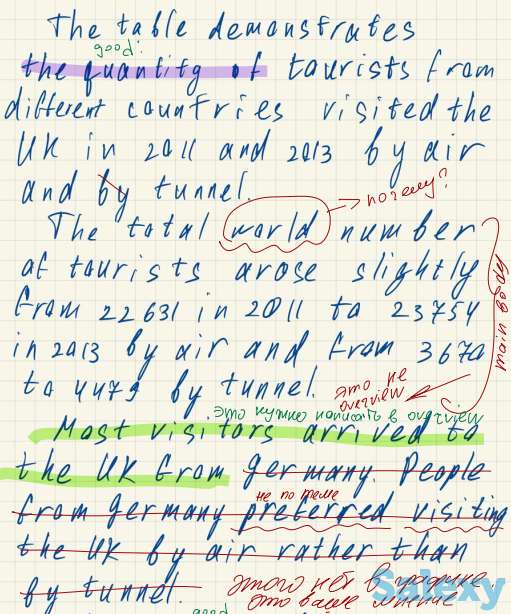 The table demonstrates
good:
the quantity of tourists from
different countries visited the
UK in 2011 and 2013 by air
and by tunnel.
почему?
The total world number
of tourists arose slightly
from 22631 in 2011 to 23754
in 2013 by air and from 3670
main body
to 4479 by tunnel.
это не
overview
это нужно написать в overview
Most visitors arrived to
the UK from germany. People
не по теме
from germany preferred visiting
the UK by air rather than
by tunnel.
этого нет в графике.
это ваше мнение
good